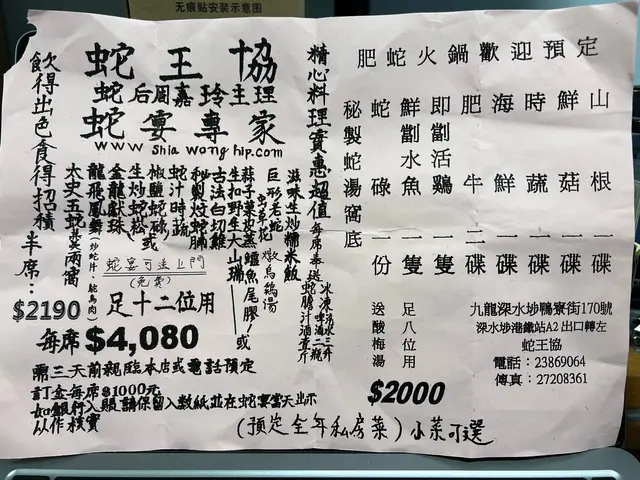 无痕贴安装示意图
飲得出色食得招積
蛇王協
蛇后周嘉玲主理
蛇宴專家
www shia wong hip.com
精心料理實惠超值
每席奉送
滋味生炒糯米飯
巨形老蛇
燉烏鷄湯
生扣野生大山瑞
古法白切雞
秘製炆蛇腩
蛇汁時蔬
椒鹽蛇碌或
生炒蛇崧
金龍獻珠
龍飛鳳舞(炒蛇片、鴕鳥肉)
太史五蛇羹兩窩
蛇宴可送上門
(免費)
半席:
$2190
足十二位用
每席$4,080
需三天前親臨本店或電話預定
訂金每席$1000元
如銀行入賬,請保留入數紙並在蛇宴當天出示
以作核實
(預定全年私房菜)小菜可選
肥蛇火鍋歡迎預定
山根一碟
鮮菇一碟
時蔬一碟
海鮮一碟
肥牛二碟
即劏活鷄一隻
鮮劏水魚一隻
蛇碌一份
秘製蛇湯窩底
足八位用
送酸梅湯
$2000
九龍深水埗鴨寮街170號
深水埗港鐵站A2 出口轉左
蛇王協
電話：23869064
傳真：27208361